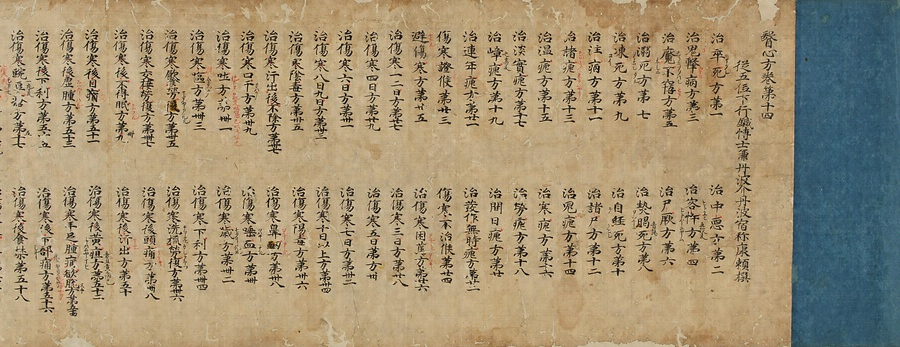 醫心方卷第十四
從五位下行鍼博士兼丹波介丹波宿祢康頼撰
治卒死方第一　治中惡方第二
治鬼擊病方第三　治客忤方第四
治魘不寤方第五　治尸厥方第六
治溺死方第七　治熱暍死方第八
治凍死方第九　治自經死方第十
治注病方第十一　治諸尸方第十二
治諸瘧方第十三　治鬼瘧方第十四
治温瘧方第十五　治寒瘧方第十六
治痰實瘧方第十七　治勞瘧方第十八
治瘴瘧方第十九　治間日瘧方第廿
治連年瘧方第廿一　治發作無時瘧方第廿二
傷寒證候第廿三　傷寒不治候第廿四
避傷寒方第廿五　治傷寒困篤方第廿六
治傷寒一二日方第廿七　治傷寒三日方第廿八
治傷寒四日方第廿九　治傷寒五日方第卅
治傷寒六日方第卅一　治傷寒七日方第卅二
治傷寒八日九日方第卅三　治傷寒十日以上方第卅四
治傷寒陰毒方第卅五　治傷寒陽毒方第卅六
治傷寒汗出後不除方第卅七　治傷寒鼻衄方第卅八
治傷寒口干方第卅九　治傷寒唾血方第卌
治傷寒吐方第卌一　治傷寒噦方第卌二
治傷寒方第卌三　治傷寒下利方第卌四
治傷寒飲食勞復方第卌五　治傷寒洗梳勞復方第卌六
治傷寒交接勞復方第卌七　治傷寒後頭痛方第卌八
治傷寒後不得眠方第卌九　治傷寒後汗出方第五十
治傷寒後目病方第五十一　治傷寒後黄疸方第五十二
治傷寒後虛腫方第五十三　治傷寒手足腫痛欲脱方第五十四
治傷寒後下利方第五十五　治傷寒後下部痛方第五十六
治傷寒豌豆瘡方第五十七　治傷寒後食禁第五十八